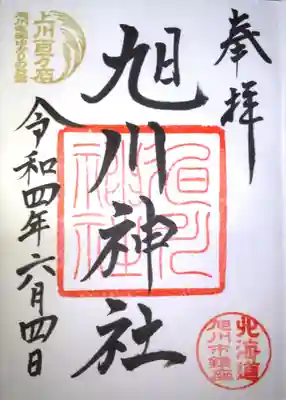 奉拝
旭川神社
旭川神社
令和四年六月四日
上川百万石
北海道
旭川市鎮座